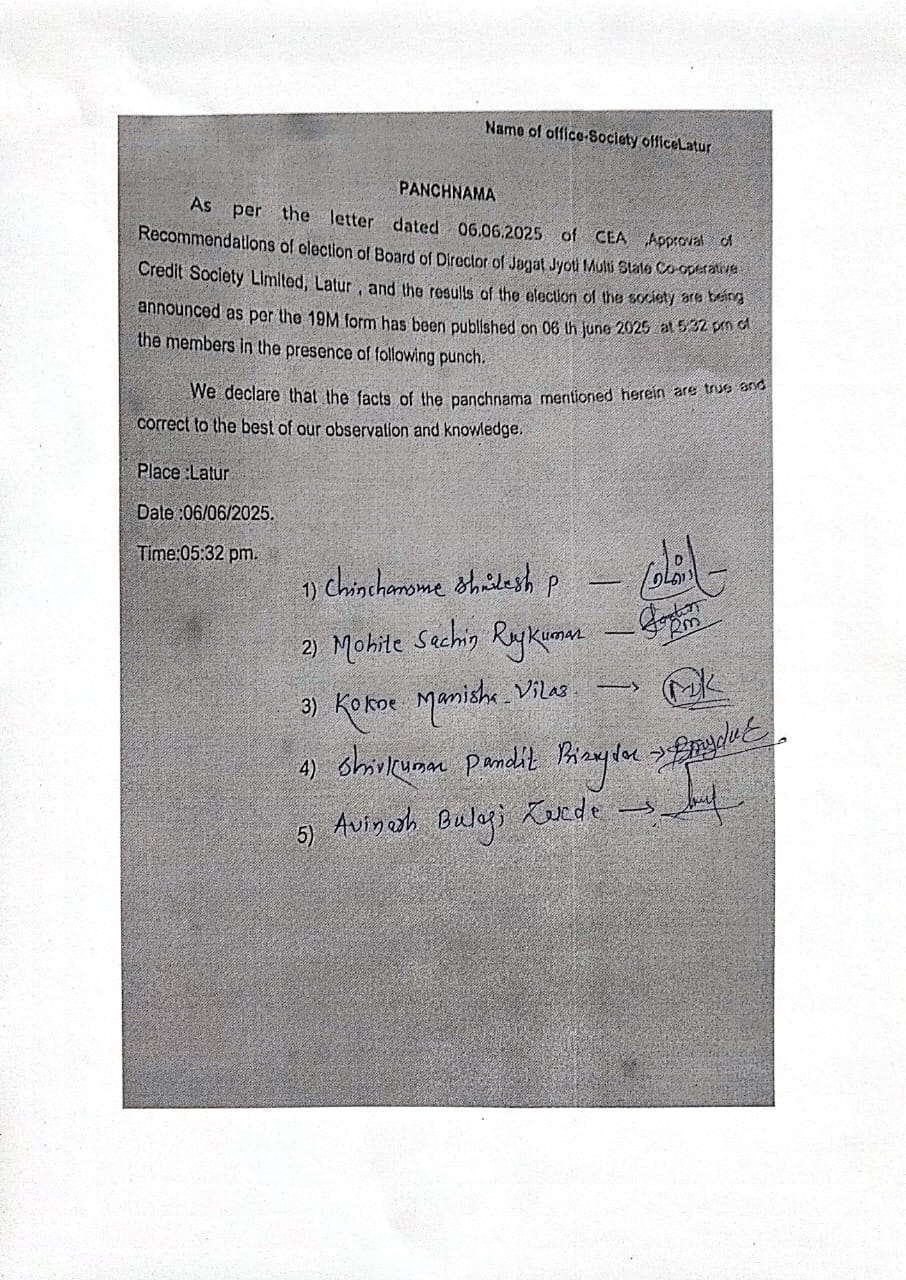 Name of office-Society officeLatur
PANCHNAMA
As per the letter dated 06.06.2025 of CEA ,Approval of
Recommendations of election of Board of Director of Jagat Jyoti Multi State Co-operative
Credit Society Limited, Latur , and the results of the election of the society are being
announced as per the 19M form has been published on 06 th june 2025 at 5:32 pm of
the members in the presence of following punch.
We declare that the facts of the panchnama mentioned herein are true and
correct to the best of our observation and knowledge.
Place :Latur
Date :06/06/2025.
Time:05:32 pm.
1) Shailesh P —
2) Mohite Sachin Rajkumar —
3) Manisha Vilas. → MK
4) Shivkumar Pandit →
5) Avinash Bulaji →